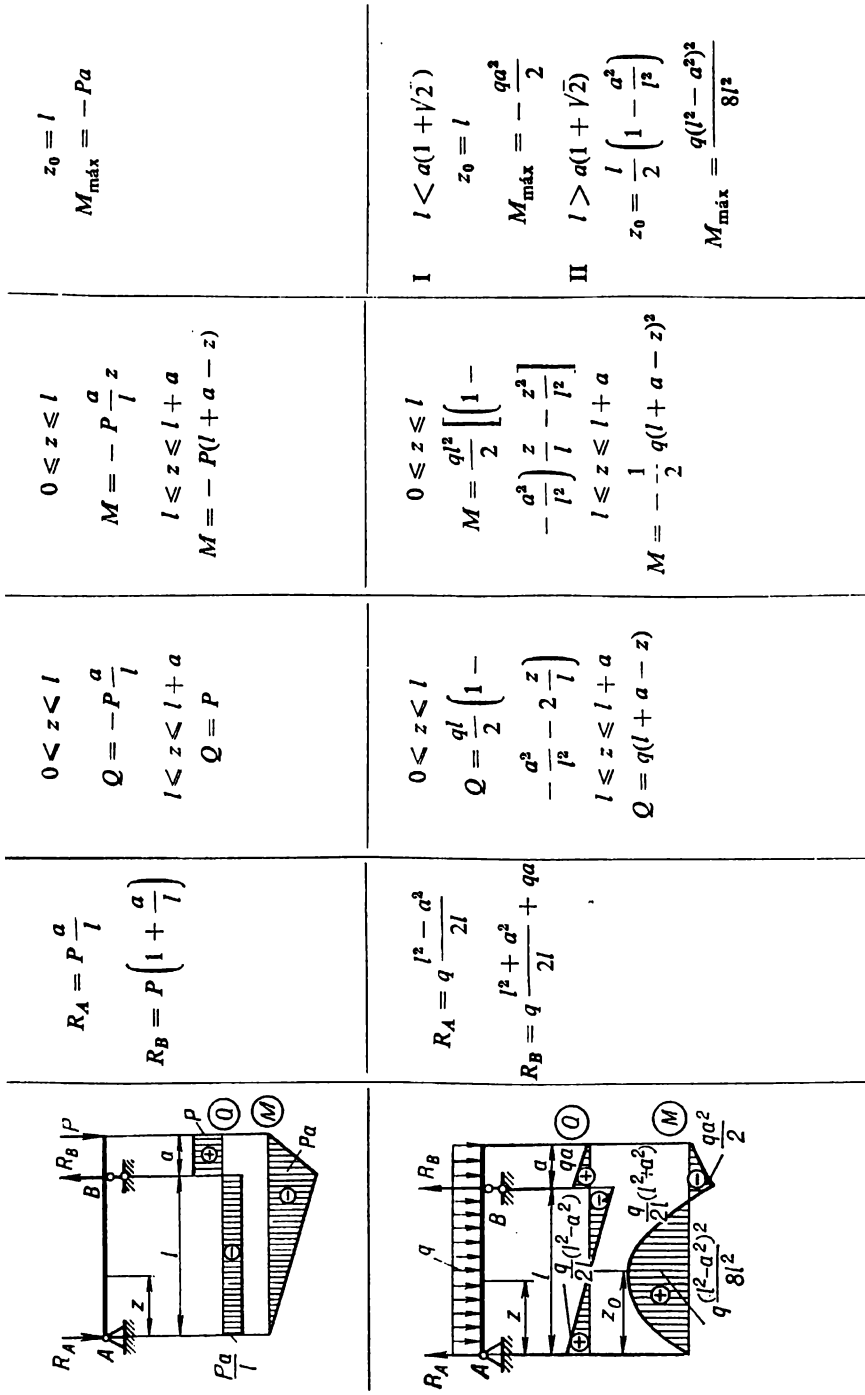 R_A
R_B
P
A
B
z
l
a
P
Q
M
Pa/l
Pa
R_A = P a/l
R_B = P(1 + a/l)
0 < z < l
Q = −P a/l
l < z < l + a
Q = P
0 ⩽ z ⩽ l
M = − P a/l z
l ⩽ z ⩽ l + a
M = − P(l + a − z)
z₀ = l
M_máx = −Pa
R_A
R_B
q
A
B
z
l
a
q/2l(l²−a²)
qa
Q
q/2l(l²+a²)
z₀
M
q (l²−a²)²/8l²
qa²/2
R_A = q (l² − a²)/2l
R_B = q (l² + a²)/2l + qa
0 < z < l
Q = ql/2 (1 −
− a²/l² − 2 z/l)
l ⩽ z ⩽ l + a
Q = q(l + a − z)
0 ⩽ z ⩽ l
M = ql²/2 [(1 −
− a²/l²) z/l − z²/l²]
l ⩽ z ⩽ l + a
M = − 1/2 q(l + a − z)²
I l < a(1 + √2)
z₀ = l
M_máx = − qa²/2
II l > a(1 + √2)
z₀ = l/2 (1 − a²/l²)
M_máx = q(l² − a²)²/8l²